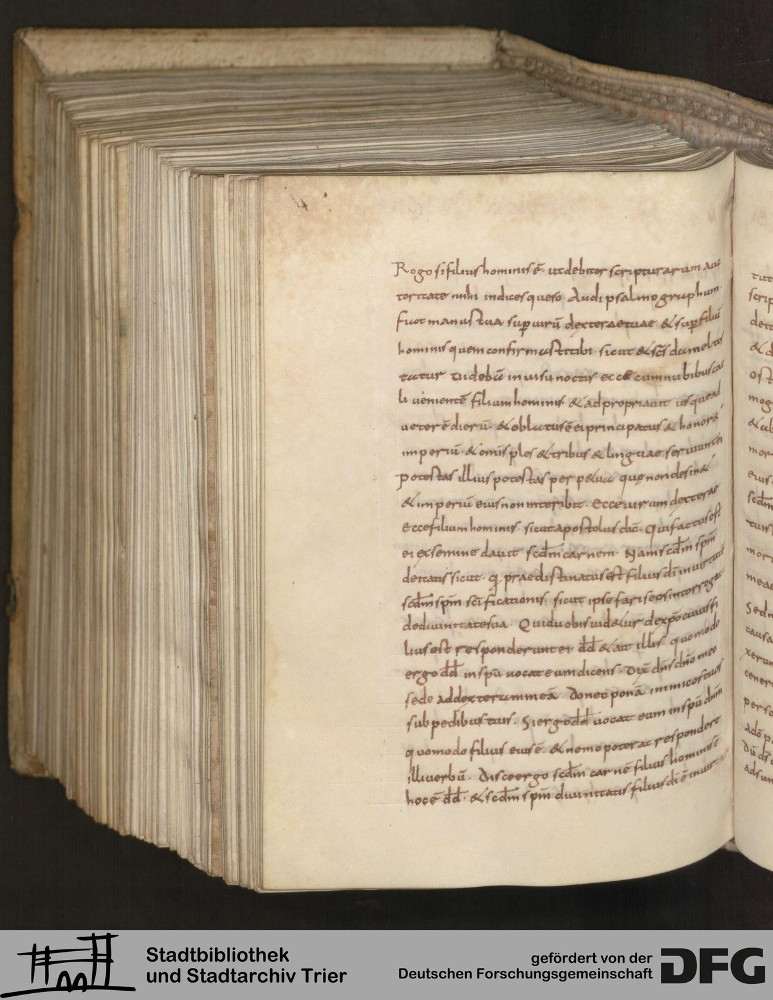 Rogo si filius hominis ē ut debitor scripturarum auc
toritate mihi indices queso. Audi psalmographum.
Fiat manus tua sup virū dexterae tuae & sup filiū
hominis quem confirmasti tibi. sicut & scs daniel tes
tatur videbā in visu noctis ecce cum nubibus cae
li venientē filium hominis & ad propriavit usque ad
veterē dierū. & oblatus ē ei principatus & honor &
imperiū. & omīs ples & tribus & linguae servient ei
potestas illius potestas perpetua que non desin&
& imperiū eius non interibit. Ecce virum dexterae
Ecce filium hominis. sicut apostolus dic. Qui factus est
ei ex semine david scdm carnem. Nam scdm spm
deitatis sicut. q. praedistinatus est filius di in virtute
scdm spm scificationis. sicut ipse fariseos interrogat
de divinitate sua. Quid vobis vid&ur de xpo cuius fi
lius est responderunt ei dd & ait illis. quomodo
ergo dd in spu vocat eum dicens. Dix dns dno meo
sede ad dexteram meā. donec ponā inimicos tuos
sub pedibus tuis. Si ergo dd vocat eum in spu dnm
quomodo filius eius ē. & nemo poterat respondere
illi verbū. Disce ergo scdm carnē filius hominis ē
hoc ē dd. & scdm spm divinitatis filius di ē in virtute
Stadtbibliothek
und Stadtarchiv Trier
gefördert von der
Deutschen Forschungsgemeinschaft
DFG